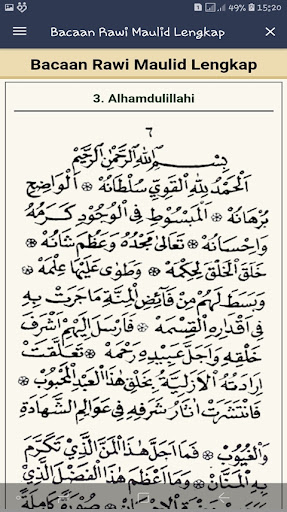 49% 15:20
Bacaan Rawi Maulid Lengkap
Bacaan Rawi Maulid Lengkap
3. Alhamdulillahi
٦
بِسْمِ اللهِ الرَّحْمٰنِ الرَّحِيْمِ
اَلْحَمْدُ لِلّٰهِ الْقَوِيِّ سُلْطَانُهْ ۞ اَلْوَاضِحِ
بُرْهَانُهْ ۞ اَلْمَبْسُوْطِ فِى الْوُجُوْدِ كَرَمُهُ
وَاِحْسَانُهْ ۞ تَعَالٰى مَجْدُهُ وَعَظُمَ شَانُهْ ۞
خَلَقَ الْخَلْقَ لِحِكْمَهْ ۞ وَطَوٰى عَلَيْهَا عِلْمَهْ ۞
وَبَسَطَ لَهُمْ مِنْ فَائِضِ الْمِنَّةِ مَاجَرَتْ بِهِ
فِى اَقْدَارِهِ الْقِسْمَهْ ۞ فَاَرْسَلَ اِلَيْهِمْ اَشْرَفَ
خَلْقِهِ وَاَجَلَّ عَبِيْدِهِ رَحْمَهْ ۞ تَعَلَّقَتْ
اِرَادَتُهُ الْاَزَلِيَّةُ بِخَلْقِ هٰذَا الْعَبْدِ الْمَحْبُوْبِ ۞
فَانْتَشَرَتْ اٰثَارُ شَرَفِهِ فِى عَوَالِمِ الشَّهَادَةِ
وَالْغُيُوْبِ ۞ فَمَا اَجَلَّ هٰذَا الْمَنَّ الَّذِيْ تَكَرَّمَ
بِهِ الْمَنَّانُ ۞ وَمَا اَعْظَمَ هٰذَا الْفَضْلَ الَّذِيْ
صُوْرَةٌ كَامِلَةٌ